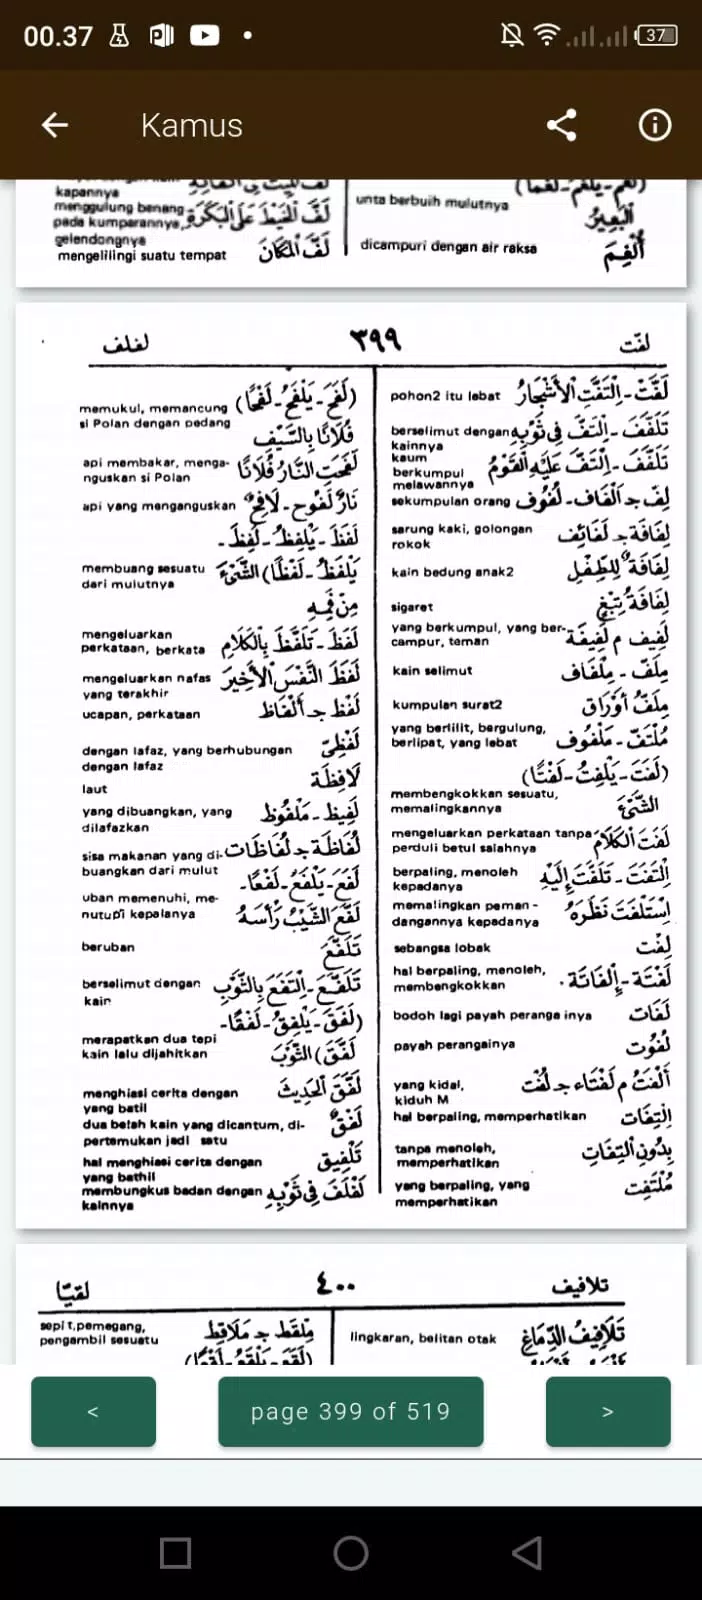 00.37
37
Kamus
kapannya
unta berbuih mulutnya
البَعِيرُ
menggulung benang pada kumparannya, gelendongnya
لَفَّ الْخَيْطَ عَلَى الْبَكَرَةِ
dicampuri dengan air raksa
أُلْغِمَ
mengelilingi suatu tempat
لَفَّ الْمَكَانَ
لفّت
٣٩٩
لفلف
pohon2 itu lebat
لَفَّتْ - اِلْتَفَّتِ الْأَشْجَارُ
berselimut dengan kainnya
تَلَفَّفَ - اِلْتَفَّ فِي ثَوْبِهِ
kaum berkumpul melawannya
تَلَفَّفَ - اِلْتَفَّ عَلَيْهِ الْقَوْمُ
sekumpulan orang
لِفّ جـ أَلْفَاف - لُفُوف
sarung kaki, golongan rokok
لِفَافَة جـ لَفَائِف
kain bedung anak2
لِفَافَةٌ لِلطِّفْلِ
sigaret
لِفَافَةُ تِبْغٍ
yang berkumpul, yang bercampur, teman
لَفِيف م لَفِيفَة
kain selimut
مِلَفّ - مِلْفَاف
kumpulan surat2
مِلَفُّ أَوْرَاقٍ
yang berlilit, bergulung, berlipat, yang lebat
مُلْتَفّ - مَلْفُوف
(لَفَتَ - يَلْفِتُ - لَفْتًا)
membengkokkan sesuatu, memalingkannya
الشَّيْءَ
mengeluarkan perkataan tanpa perduli betul salahnya
لَفَتَ الْكَلَامَ
berpaling, menoleh kepadanya
اِلْتَفَتَ - تَلَفَّتَ إِلَيْهِ
memalingkan pemandangannya kepadanya
اِسْتَلْفَتَ نَظَرَهُ
sebangsa lobak
لِفْت
hal berpaling, menoleh, membengkokkan
لَفْتَة - اِلْفَاتَة
bodoh lagi payah peranga inya
لَفَات
payah perangainya
لَفُوت
yang kidal, kiduh M
أَلْفَتُ م لَفْتَاء جـ لُفْت
hal berpaling, memperhatikan
اِلْتِفَات
tanpa menoleh, memperhatikan
بِدُونِ الْتِفَاتٍ
yang berpaling, yang memperhatikan
مُلْتَفِت
(لَفَحَ - يَلْفَحُ - لَفْحًا)
memukul, memancung si Polan dengan pedang
فُلَانًا بِالسَّيْفِ
api membakar, menganguskan si Polan
لَفَحَتِ النَّارُ فُلَانًا
api yang menganguskan
نَارٌ لَفُوح - لَافِحٌ
لَفَظَ - يَلْفِظُ - لَفِظَ -
membuang sesuatu dari mulutnya
يَلْفَظُ - لَفْظًا) الشَّيْءَ
مِنْ فَمِهِ
mengeluarkan perkataan, berkata
لَفَظَ - تَلَفَّظَ بِالْكَلَامِ
mengeluarkan nafas yang terakhir
لَفَظَ النَّفَسَ الْأَخِيرَ
ucapan, perkataan
لَفْظ جـ أَلْفَاظ
dengan lafaz, yang berhubungan dengan lafaz
لَفْظِيّ
laut
لَافِظَة
yang dibuangkan, yang dilafazkan
لَفِيظ - مَلْفُوظ
sisa makanan yang dibuangkan dari mulut
لُفَاظَة جـ لُفَاظَات
لَفَعَ - يَلْفَعُ - لَفْعًا -
uban memenuhi, menutupi kepalanya
لَفَّعَ الشَّيْبُ رَأْسَهُ
beruban
تَلَفَّعَ
berselimut dengan kain
تَلَفَّعَ - اِلْتَفَعَ بِالثَّوْبِ
(لَفَقَ - يَلْفِقُ - لَفْقًا -
merapatkan dua tepi kain lalu dijahitkan
لَفَّقَ) الثَّوْبَ
menghiasi cerita dengan yang batil
لَفَّقَ الْحَدِيثَ
dua belah kain yang dicantum, dipertemukan jadi satu
لَفْقٌ
hal menghiasi cerita dengan yang bathil
تَلْفِيق
membungkus badan dengan kainnya
لَفْلَفَ فِي ثَوْبِهِ
تلافيف
٤٠٠
لقيّا
lingkaran, belitan otak
تَلَافِيفُ الدِّمَاغِ
sepit, pemegang, pengambil sesuatu
مِلْقَط جـ مَلَاقِط
<
page 399 of 519
>